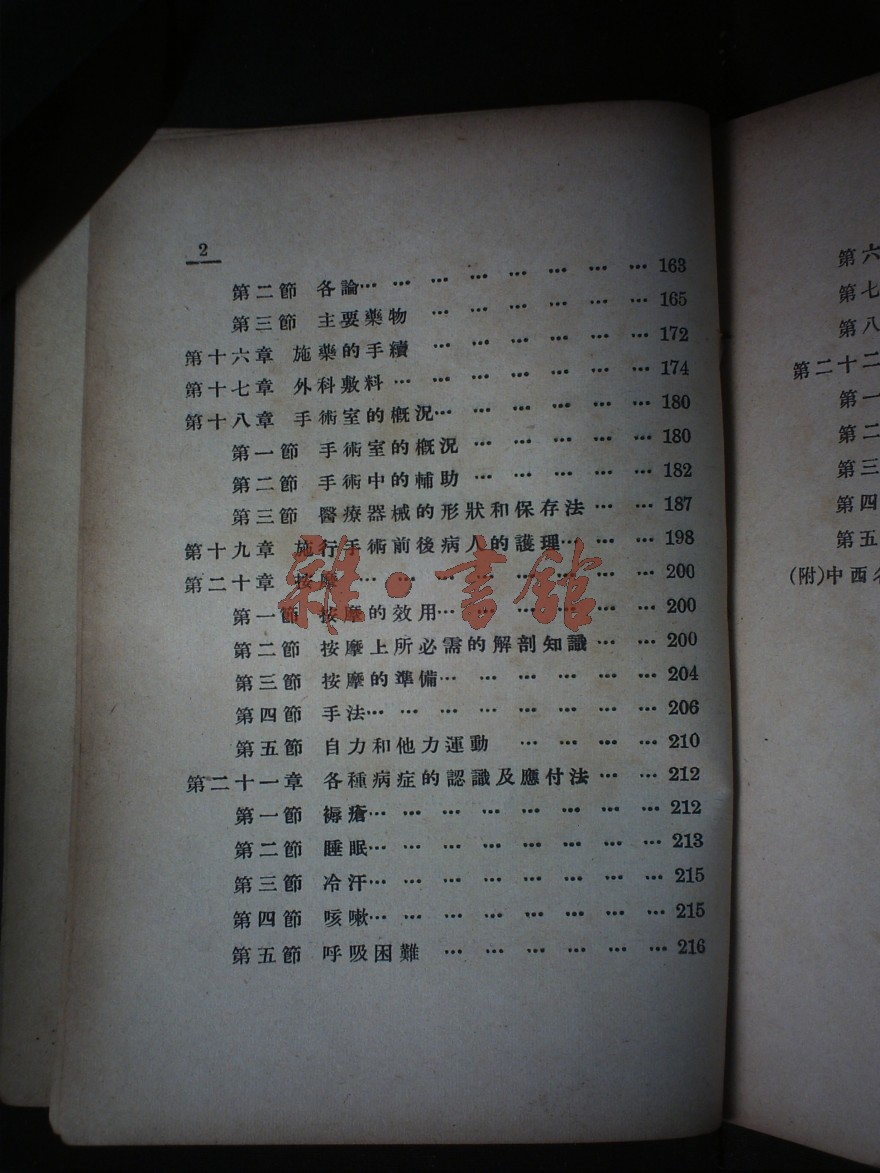 2
第二節 各論… … … … … … … … 163
第三節 主要藥物 … … … … … … 165
第十六章 施藥的手續 … … … … … … 172
第十七章 外科敷料 … … … … … … … 174
第十八章 手術室的概況… … … … … … 180
第一節 手術室的概況 … … … … … 180
第二節 手術中的輔助 … … … … … 182
第三節 醫療器械的形狀和保存法 … … 187
第十九章 施行手術前後病人的護理… … … 198
第二十章 按摩 … … … … … … … … 200
第一節 按摩的效用… … … … … … 200
第二節 按摩上所必需的解剖知識 … … 200
第三節 按摩的準備… … … … … … 204
第四節 手法… … … … … … … … 206
第五節 自力和他力運動 … … … … 210
第二十一章 各種病症的認識及應付法 … … 212
第一節 褥瘡… … … … … … … … 212
第二節 睡眠… … … … … … … … 213
第三節 冷汗… … … … … … … … 215
第四節 咳嗽… … … … … … … … 215
第五節 呼吸困難 … … … … … … 216
雜·書館
第六
第七
第八
第二十二
第一
第二
第三
第四
第五
(附)中西名